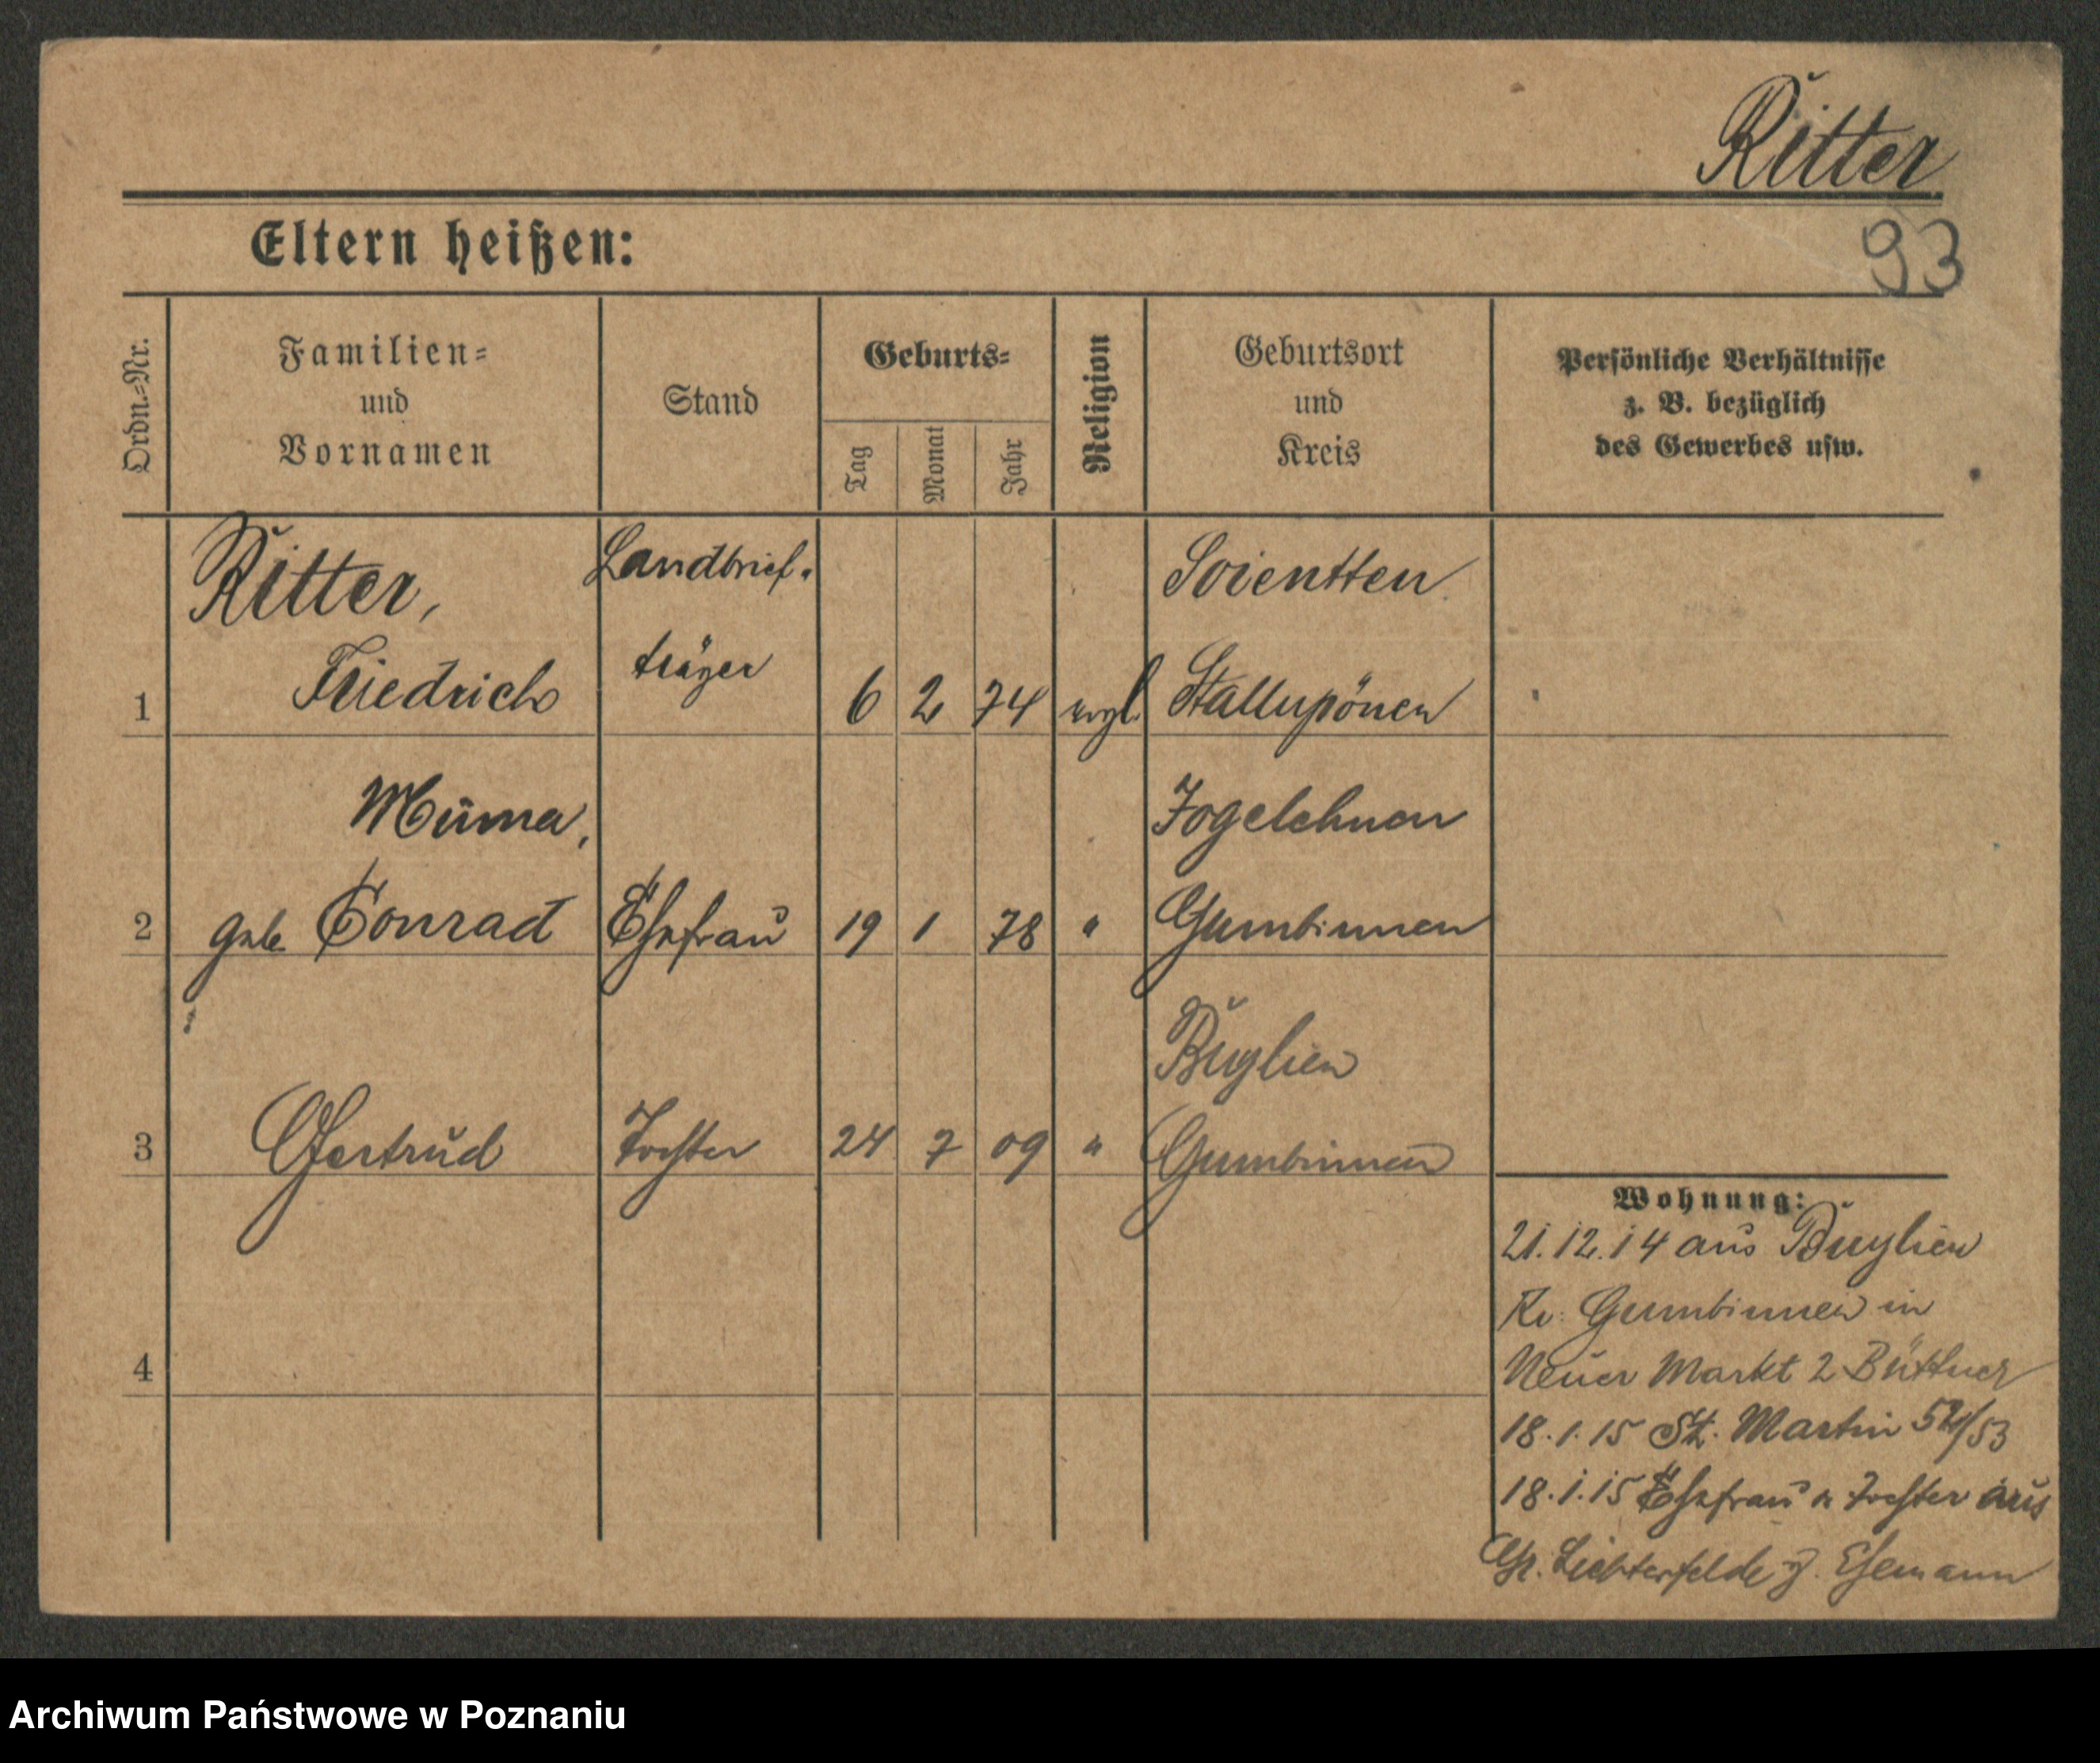 Ritter
93
Eltern heißen:
Ordn.-Nr.
Familien-
und
Vornamen
Stand
Geburts-
Tag
Monat
Jahr
Religion
Geburtsort
und
Kreis
Persönliche Verhältnisse
z. B. bezüglich
des Gewerbes usw.
Ritter,
Landbrief-
Soientten
1 Friedrich träger 6 2 74 evgl. Stallupönen
Minna,
Jogelehnen
2 geb. Conrad Ehefrau 19 1 78 " Gumbinnen
Buylien
3 Gertrud Tochter 24 7 09 " Gumbinnen
Wohnung:
21.12.14 aus Buylien
Kr. Gumbinnen in
4
Neuer Markt 2 Büttner
18.1.15 St. Martin 52/53
18.1.15 Ehefrau u Tochter aus
Gr. Lichterfelde z. Ehemann
Archiwum Państwowe w Poznaniu